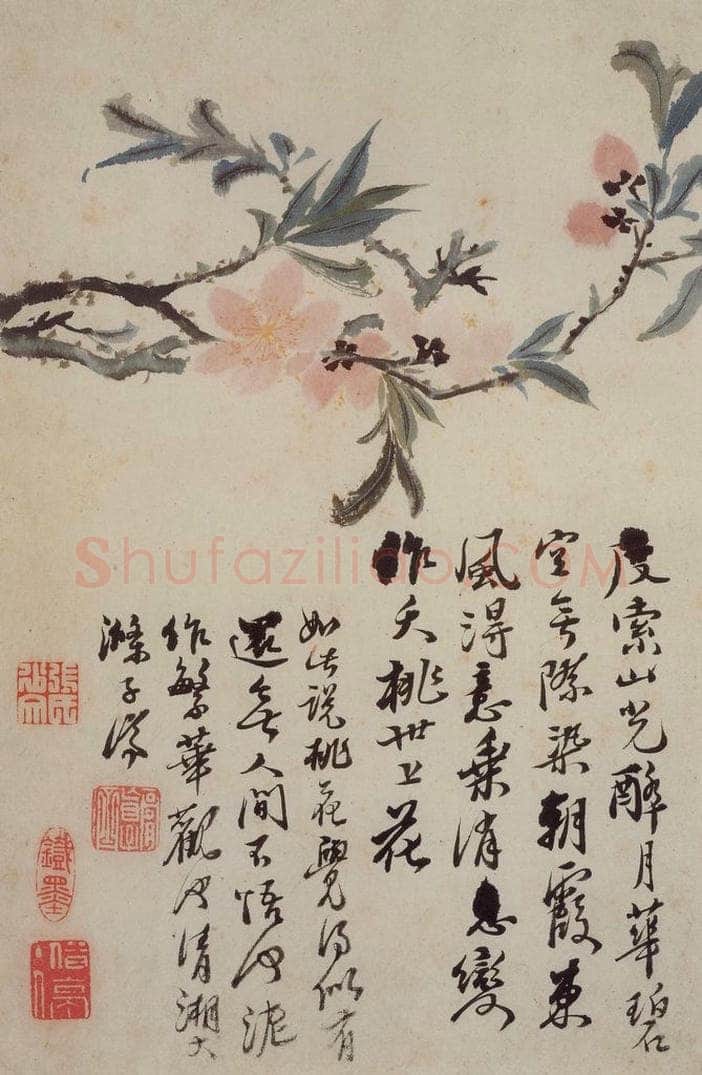 度索山光醉月華碧
空無際染朝霞東
風得意乘消息變
作夭桃世上花
如此說桃花覺得似有
還無人間不悟何泥
作繁華觀也清湘大
滌子濟
鐵墨
Shufaziliao.COM